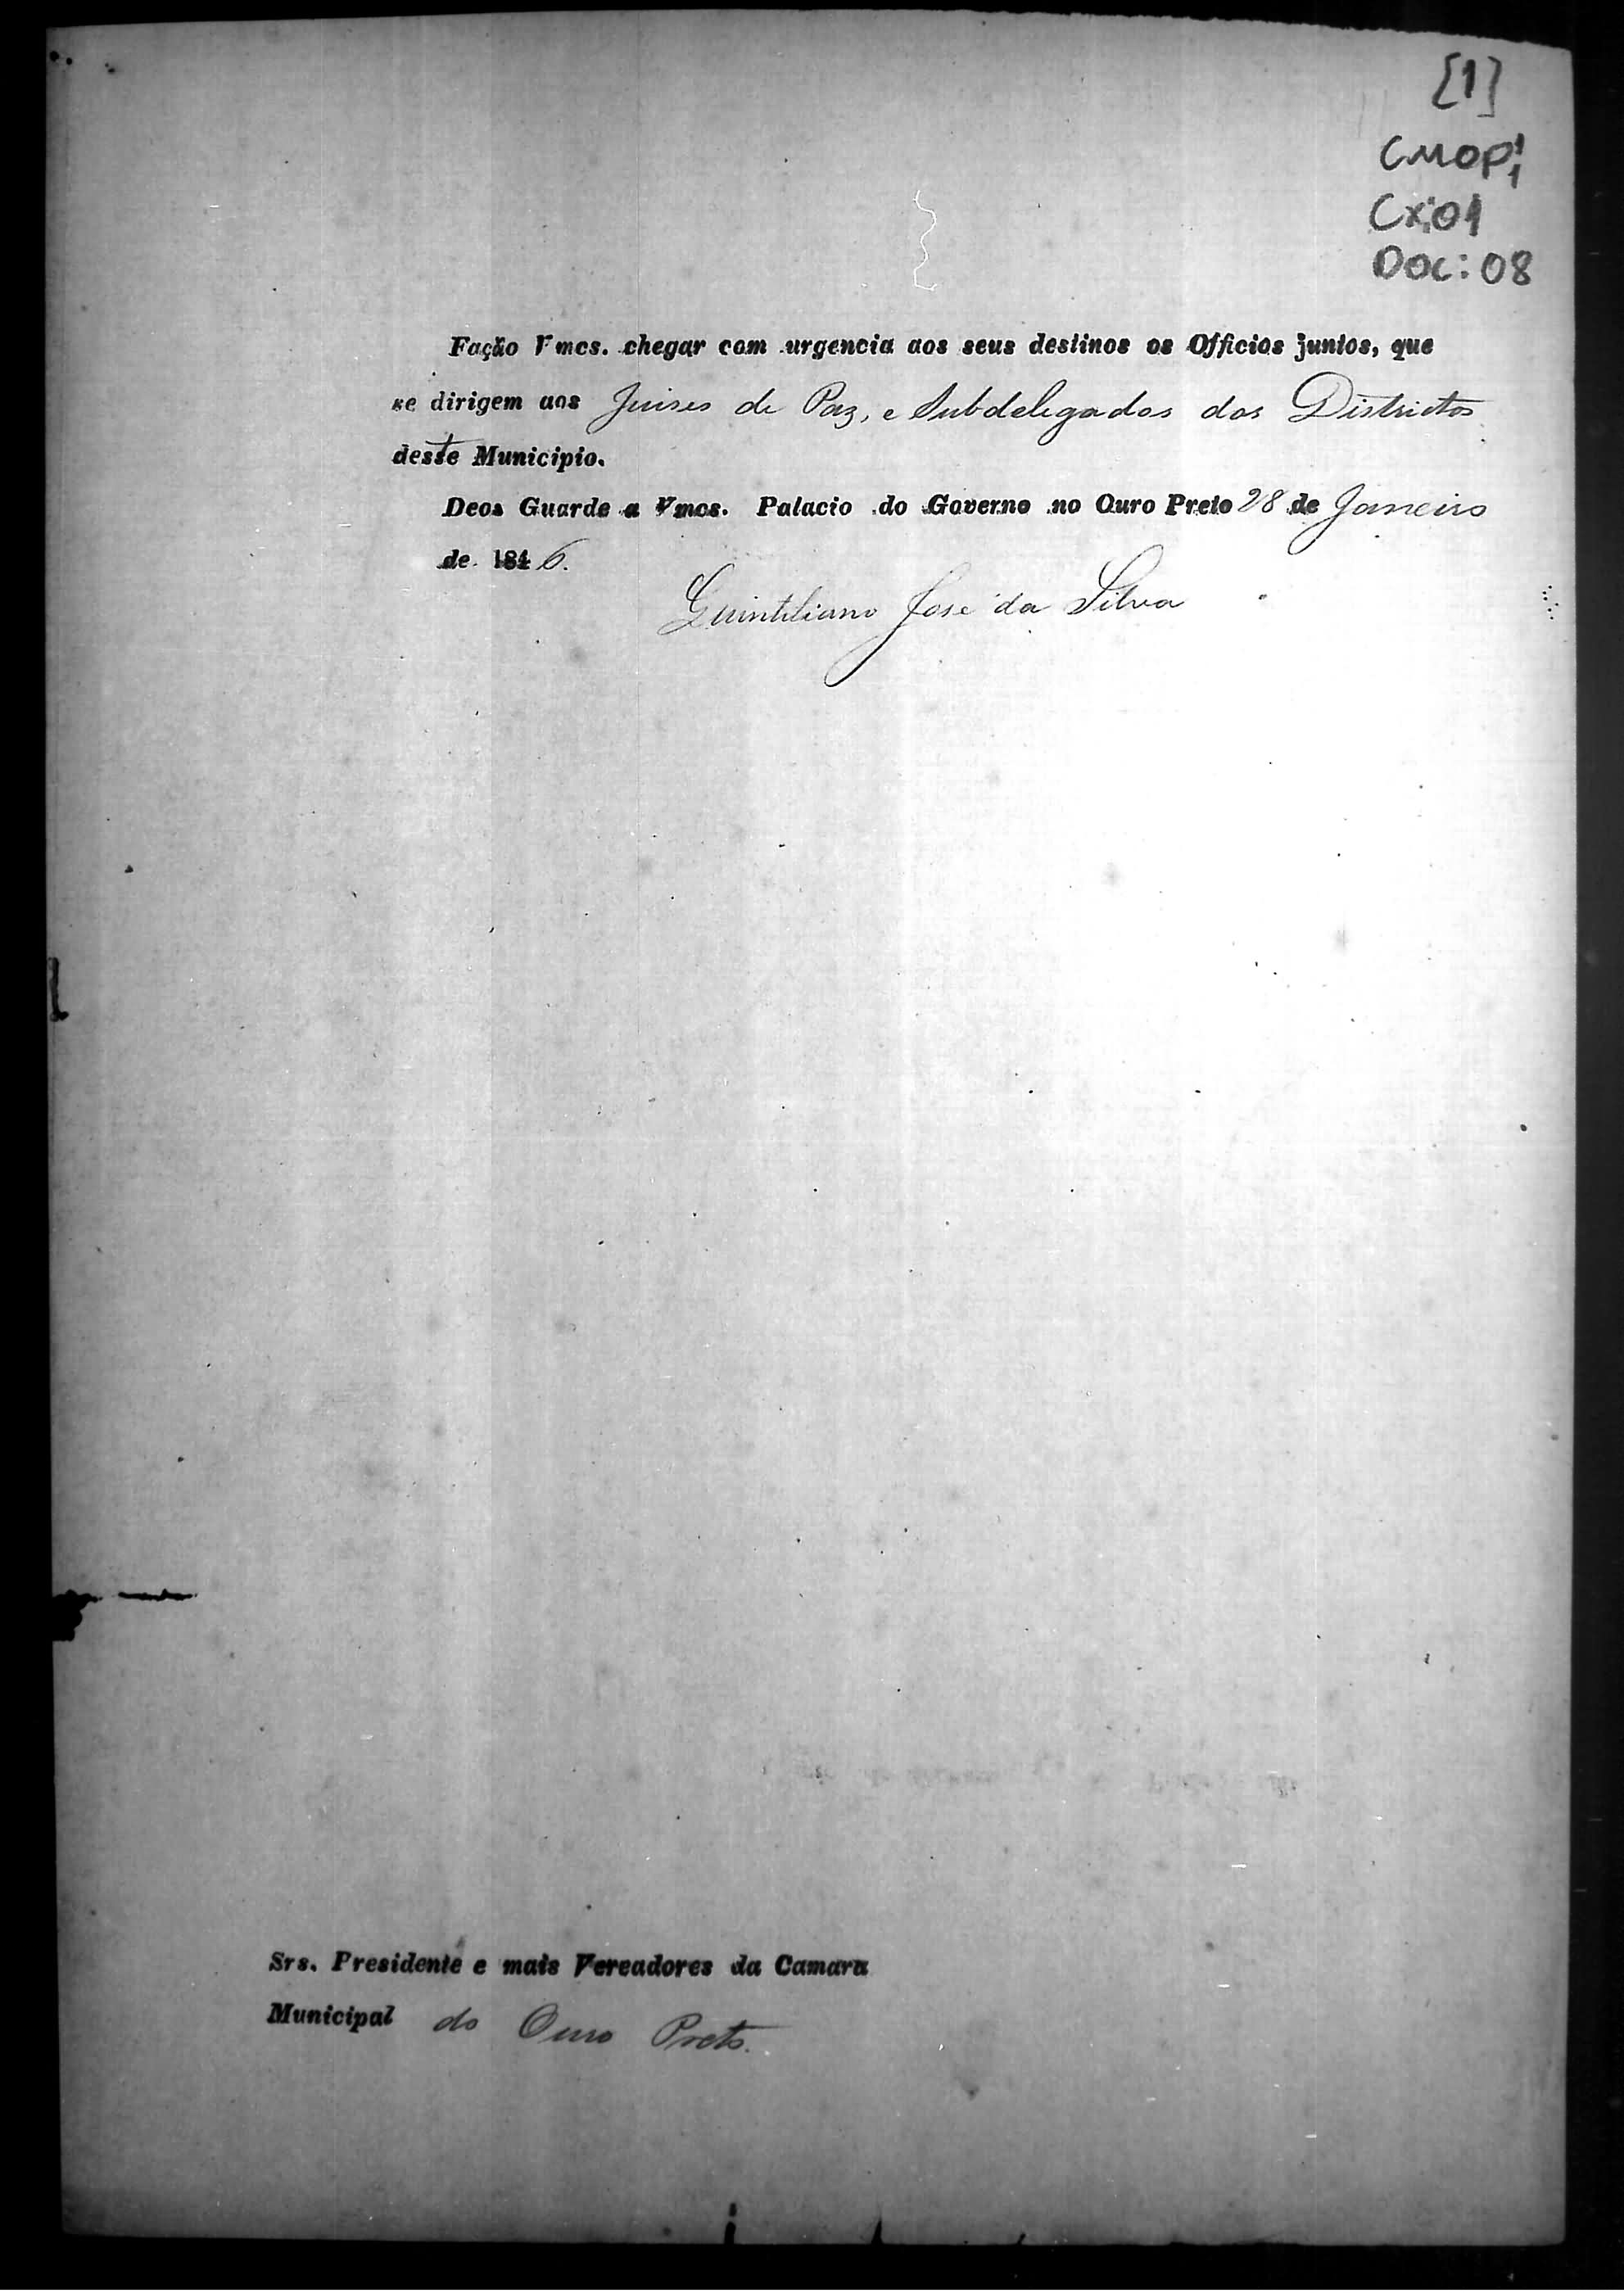 [1]
CMOP 1
Cx: 01
DOC: 08
Fação Vmcs. chegar com urgencia aos seus destinos os Officios juntos, que
se dirigem aos Juises de Paz, e Subdelegados dos Districtos
deste Municipio.
Deos Guarde a Vmcs. Palacio do Governo no Ouro Preto 28 de Janeiro
de 1846.
Quintiliano José da Silva
Srs. Presidente e mais Vereadores da Camara
Municipal do Ouro Preto.